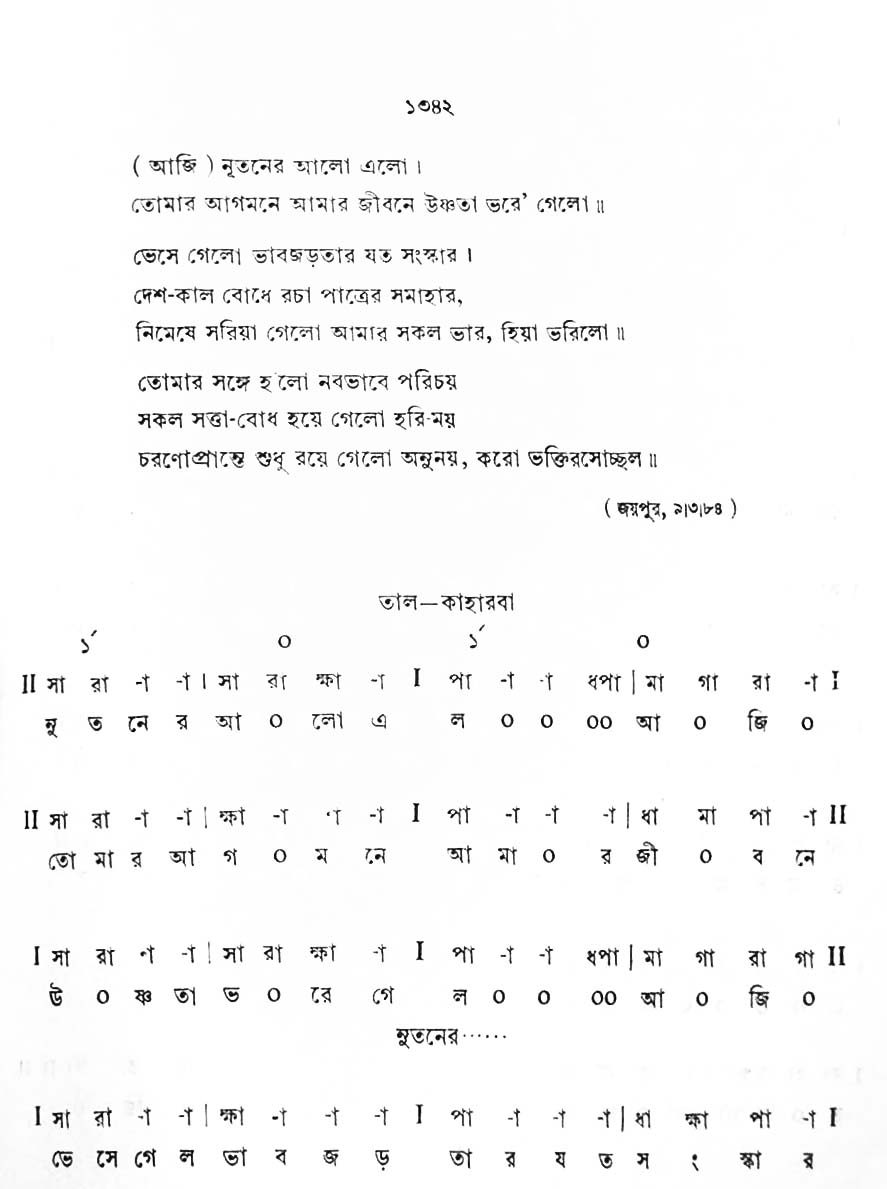 ১৩৪২
( আজি ) নূতনের আলো এলো ।
তোমার আগমনে আমার জীবনে উষ্ণতা ভরে' গেলো ॥
ভেসে গেলো ভাবজড়তার যত সংস্কার ।
দেশ-কাল বোধে রচা পাত্রের সমাহার,
নিমেষে সরিয়া গেলো আমার সকল ভার, হিয়া ভরিলো ॥
তোমার সঙ্গে হ'লো নবভাবে পরিচয়
সকল সত্তা-বোধ হয়ে গেলো হরি-ময়
চরণোপ্রান্তে শুধু রয়ে গেলো অনুনয়, করো ভক্তিরসোচ্ছল ॥
( জয়পুর, ৯|৩|৮৪ )
তাল—কাহারবা
১´ ০ ১´ ০
II সা রা -া -া । সা রা ক্ষা -া I পা -া -া ধপা | মা গা রা -া I
নূ ত নে র আ ০ লো এ ল ০ ০ ০০ আ ০ জি ০
II সা রা -া -া | ক্ষা -া -া -া I পা -া -া -া | ধা মা পা -া II
তো মা র আ গ ০ ম নে আ মা ০ র জী ০ ব নে
I সা রা -া -া | সা রা ক্ষা -া I পা -া -া ধপা | মা গা রা গা II
উ ০ ষ্ণ তা ভ ০ রে গে ল ০ ০ ০০ আ ০ জি ০
নূতনের······
I সা রা -া -া | ক্ষা -া -া -া I পা -া -া -া | ধা ক্ষা পা -া I
ভে সে গে ল ভা ব জ ড় তা র য ত স ং স্কা র